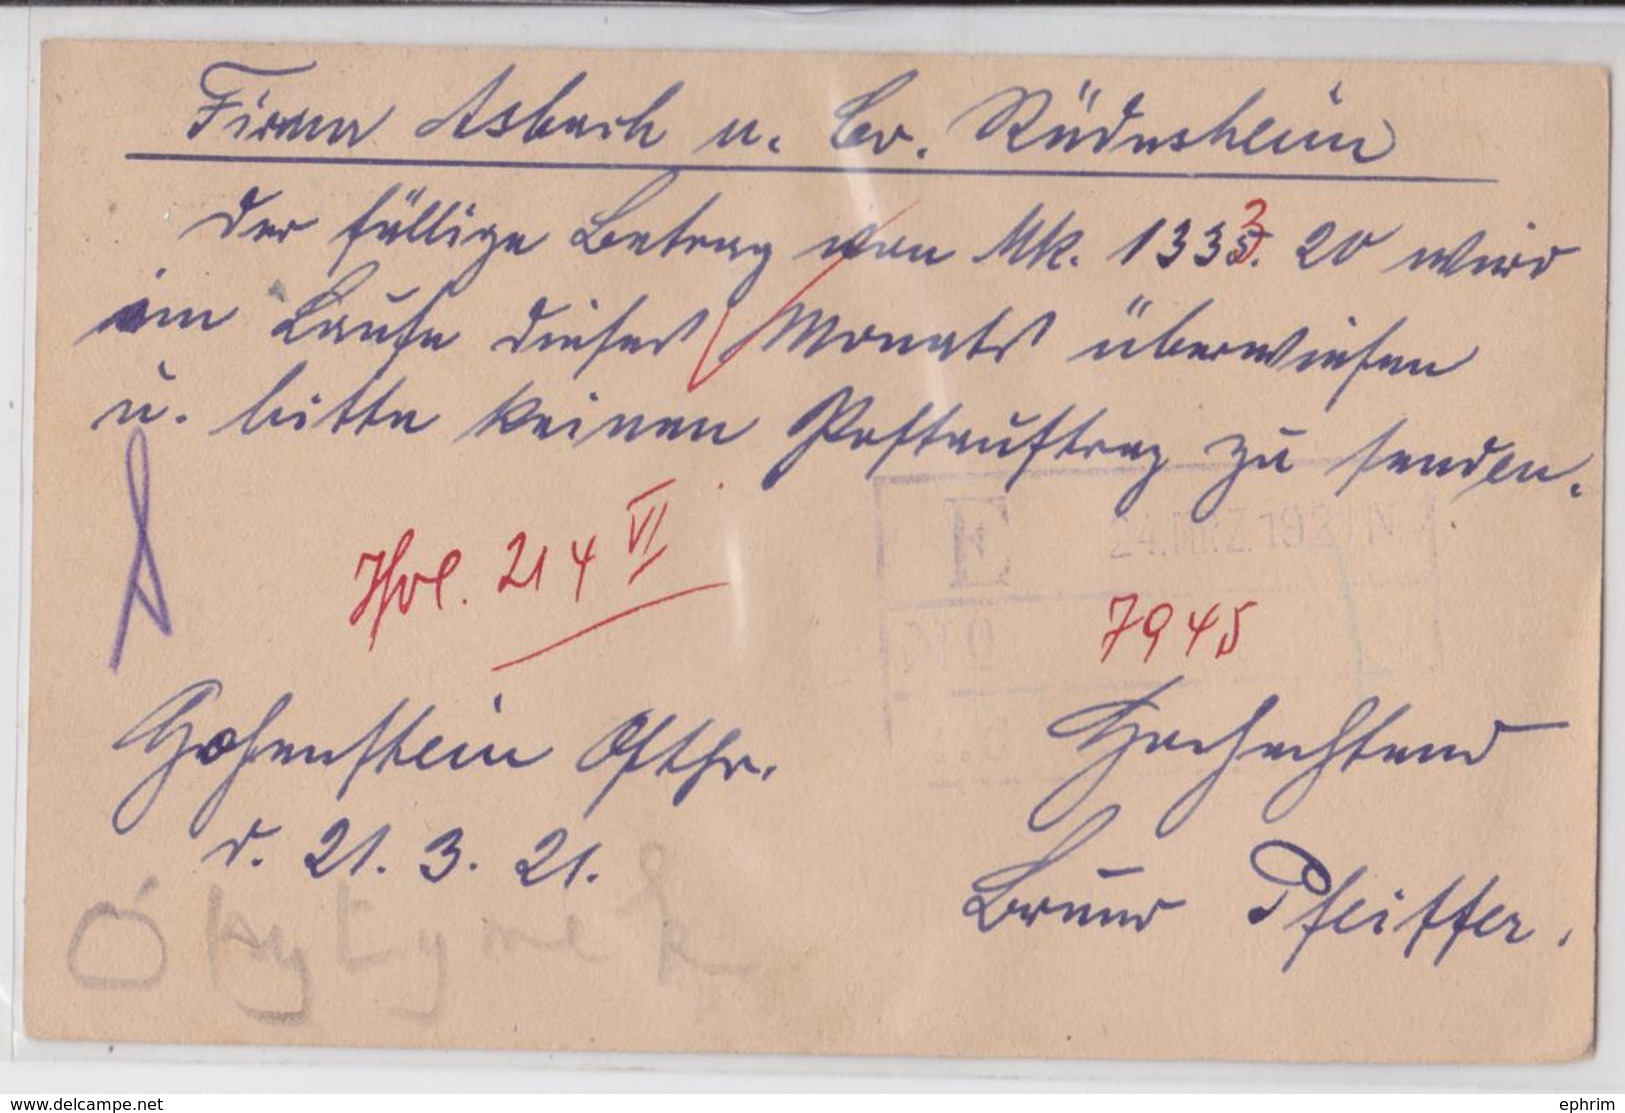 Firma Asbach u. Co. Rüdesheim
Der fällige Betrag von Mk. 1333. 20 wird
im Laufe dieses Monats überwiesen
u. bitte keinen Postauftrag zu senden.
E 24.MRZ.1921 N.
214 VI
7945
Hohenstein Ostpr. Hochachtend
d. 21. 3. 21.
Bruno Pfeiffer.
www.delcampe.net
ephrim